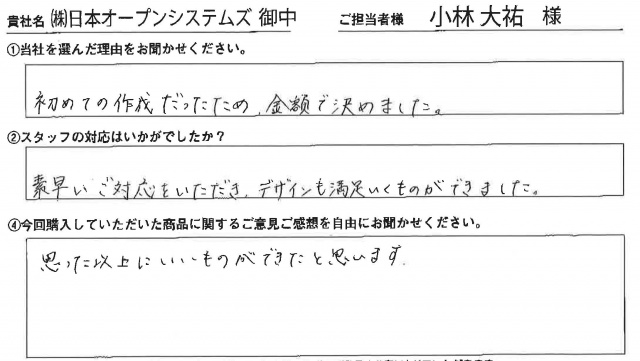 貴社名 ㈱日本オープンシステムズ 御中 ご担当者様 小林 大祐 様
①当社を選んだ理由をお聞かせください。
初めての作成だったため、金額で決めました。
②スタッフの対応はいかがでしたか？
素早いご対応をいただき、デザインも満足いくものができました。
④今回購入していただいた商品に関するご意見ご感想を自由にお聞かせください。
思った以上にいいものができたと思います.